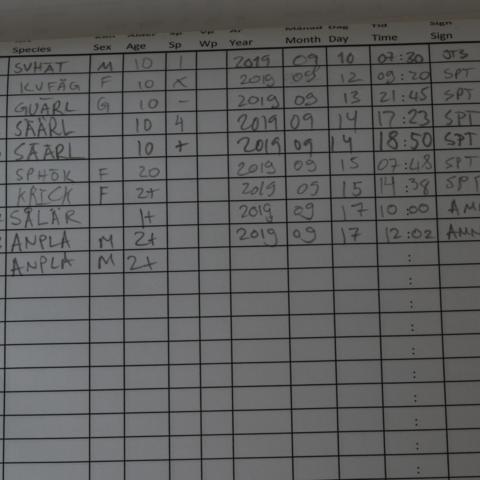 Månad Dag Tid Sign
Species Sex Age Sp Wp Year Month Day Time Sign
SVHAT M 10 1 2019 09 10 07:30 JTS
F 10 X 2019 09 12 09:20 SPT
GUÄRL G 10 - 2019 09 13 21:45 SPT
SÄÄRL 10 4 2019 09 14 17:23 SPT
SÄÄRL 10 + 2019 09 14 18:50 SPT
SPHÖK F 20 2019 09 15 07:48 SPT
KRICK F 2+ 2019 09 15 14:38 SPT
SÅLÄR 1+ 2019 09 17 10:00
ANPLA M 2+ 2019 09 17 12:02
ANPLA M 2+ :